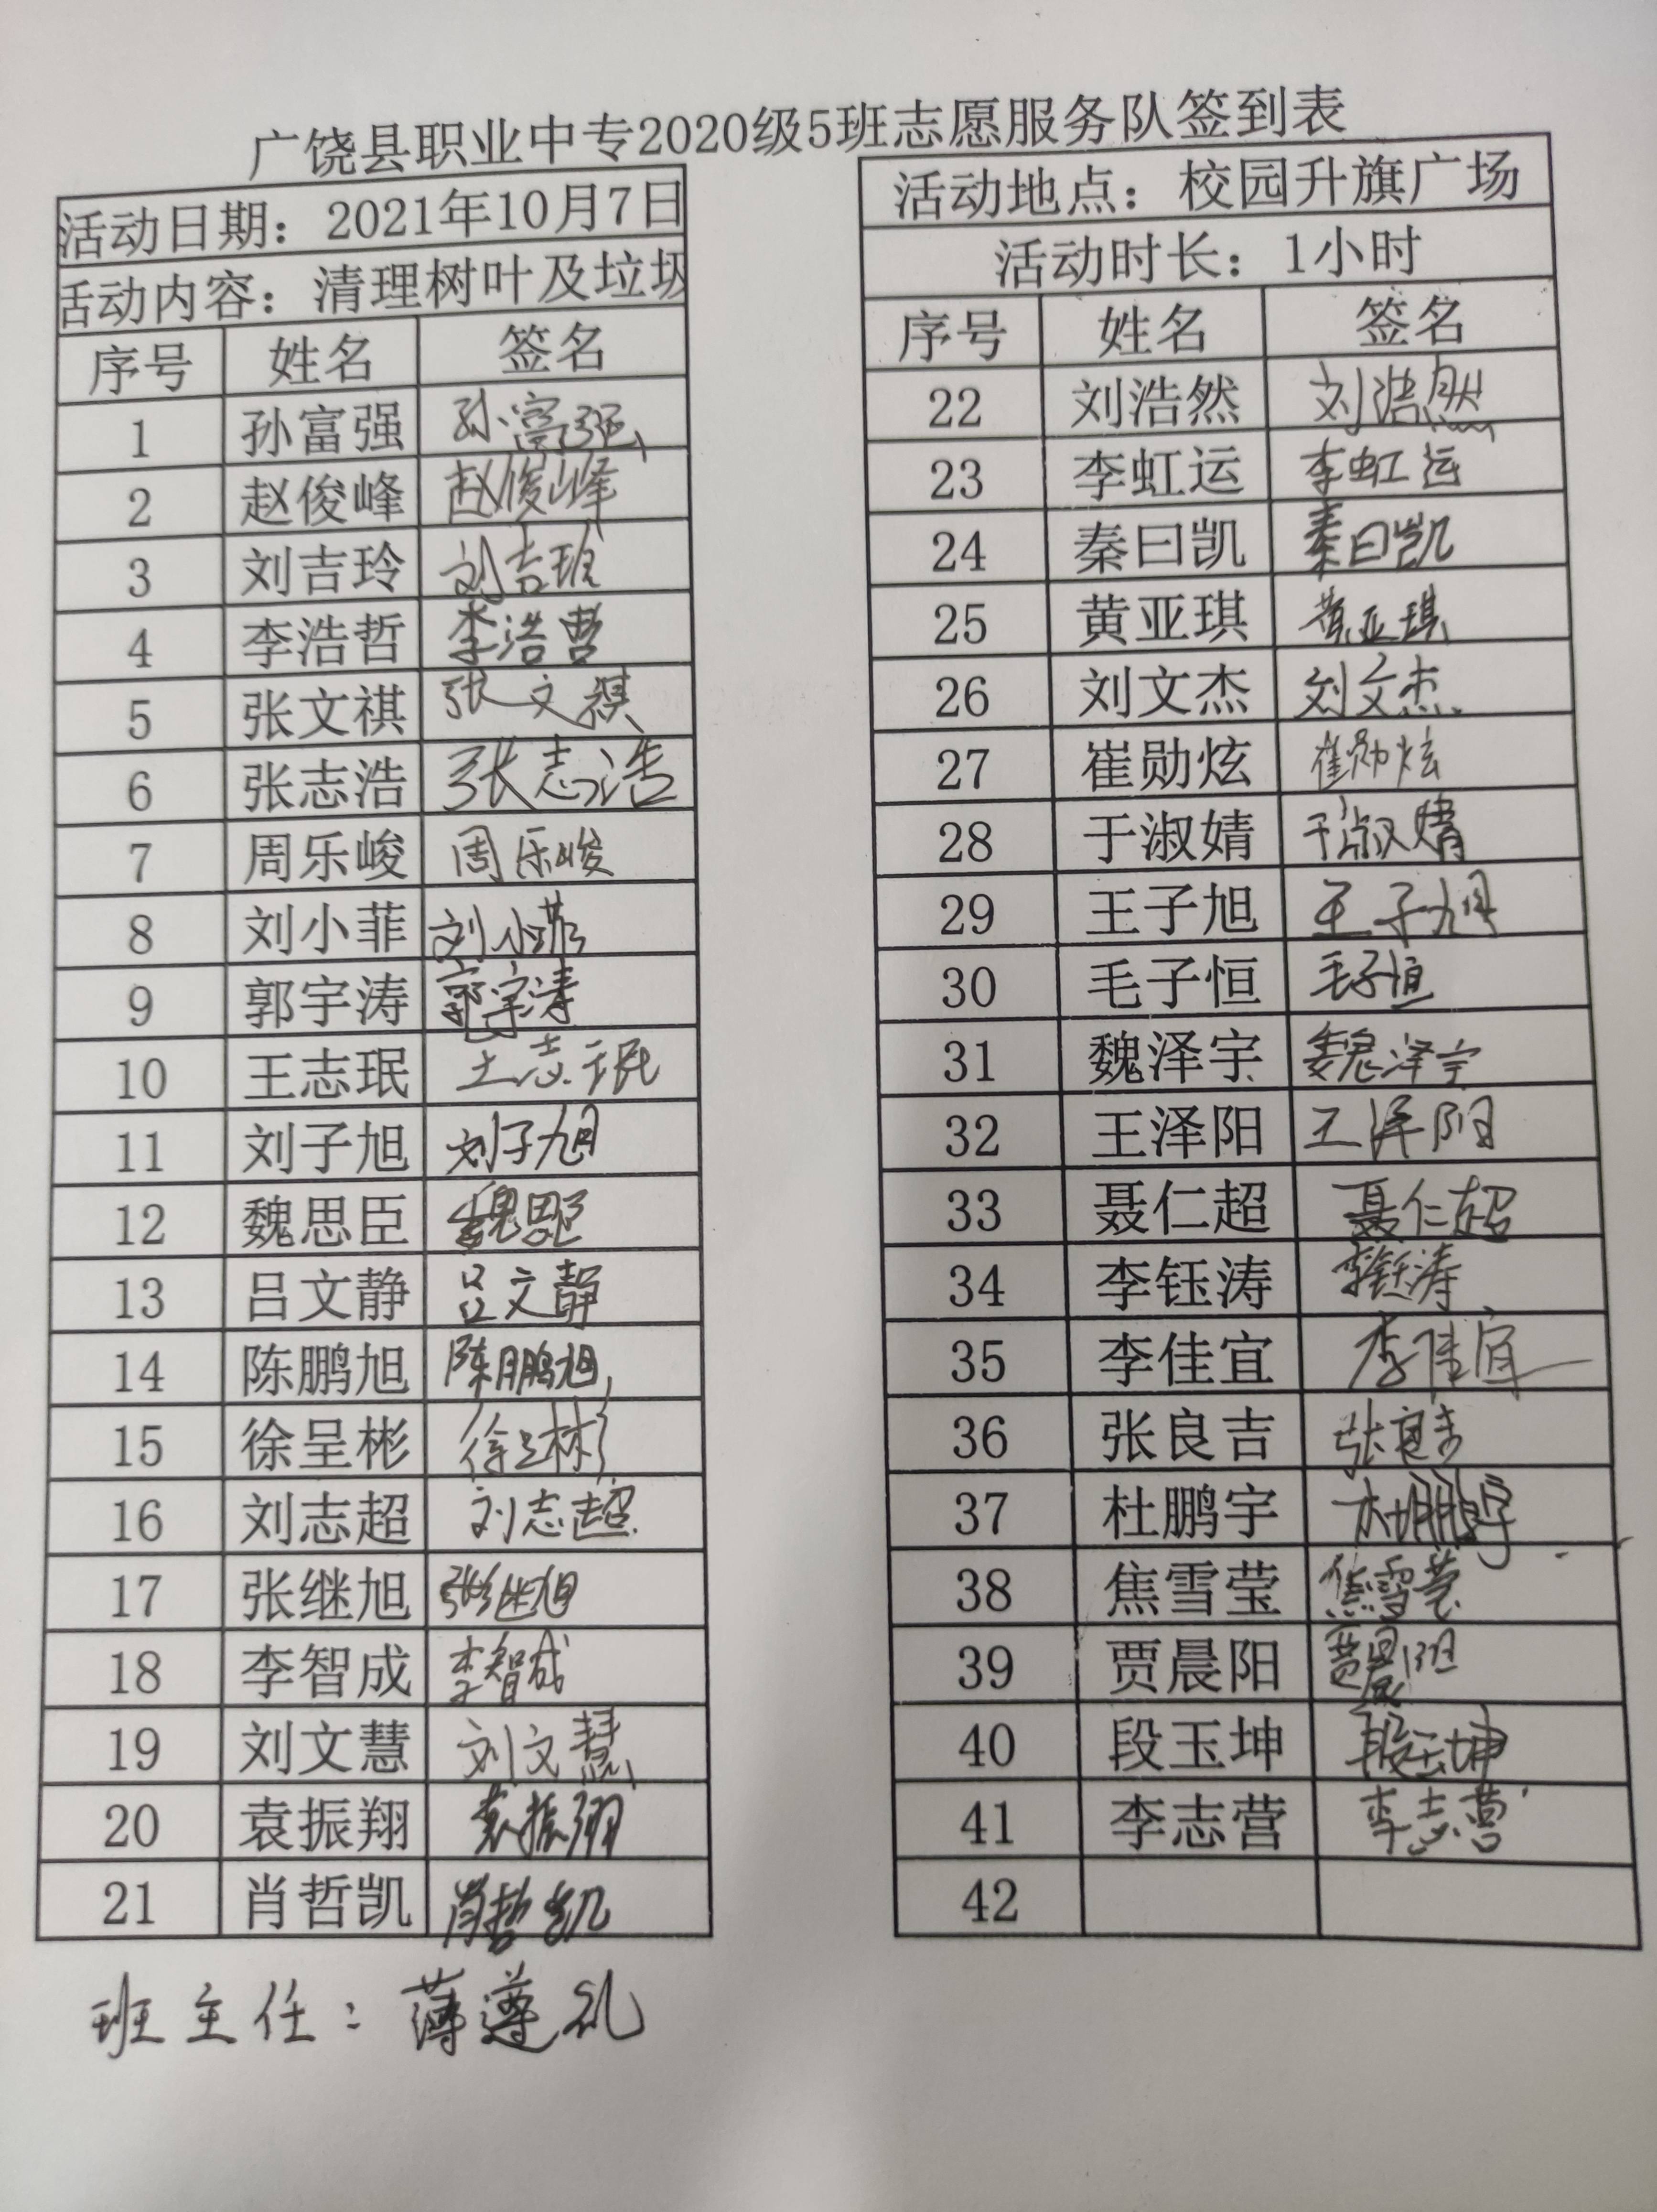 广饶县职业中专2020级5班志愿服务队签到表
活动日期：2021年10月7日
活动内容：清理树叶及垃圾
序号 姓名 签名
1 孙富强 孙富强
2 赵俊峰 赵俊峰
3 刘吉玲 刘吉玲
4 李浩哲 李浩哲
5 张文祺 张文祺
6 张志浩 张志浩
7 周乐峻 周乐峻
8 刘小菲 刘小菲
9 郭宇涛 郭宇涛
10 王志珉 王志珉
11 刘子旭 刘子旭
12 魏思臣 魏思臣
13 吕文静 吕文静
14 陈鹏旭 陈鹏旭
15 徐呈彬 徐呈彬
16 刘志超 刘志超
17 张继旭 张继旭
18 李智成 李智成
19 刘文慧 刘文慧
20 袁振翔 袁振翔
21 肖哲凯 肖哲凯
活动地点：校园升旗广场
活动时长：1小时
序号 姓名 签名
22 刘浩然 刘浩然
23 李虹运 李虹运
24 秦曰凯 秦曰凯
25 黄亚琪 黄亚琪
26 刘文杰 刘文杰
27 崔勋炫 崔勋炫
28 于淑婧 于淑婧
29 王子旭 王子旭
30 毛子恒 毛子恒
31 魏泽宇 魏泽宇
32 王泽阳 王泽阳
33 聂仁超 聂仁超
34 李钰涛 李钰涛
35 李佳宜 李佳宜
36 张良吉 张良吉
37 杜鹏宇 杜鹏宇
38 焦雪莹 焦雪莹
39 贾晨阳 贾晨阳
40 段玉坤 段玉坤
41 李志营 李志营
42
班主任：薄遵礼